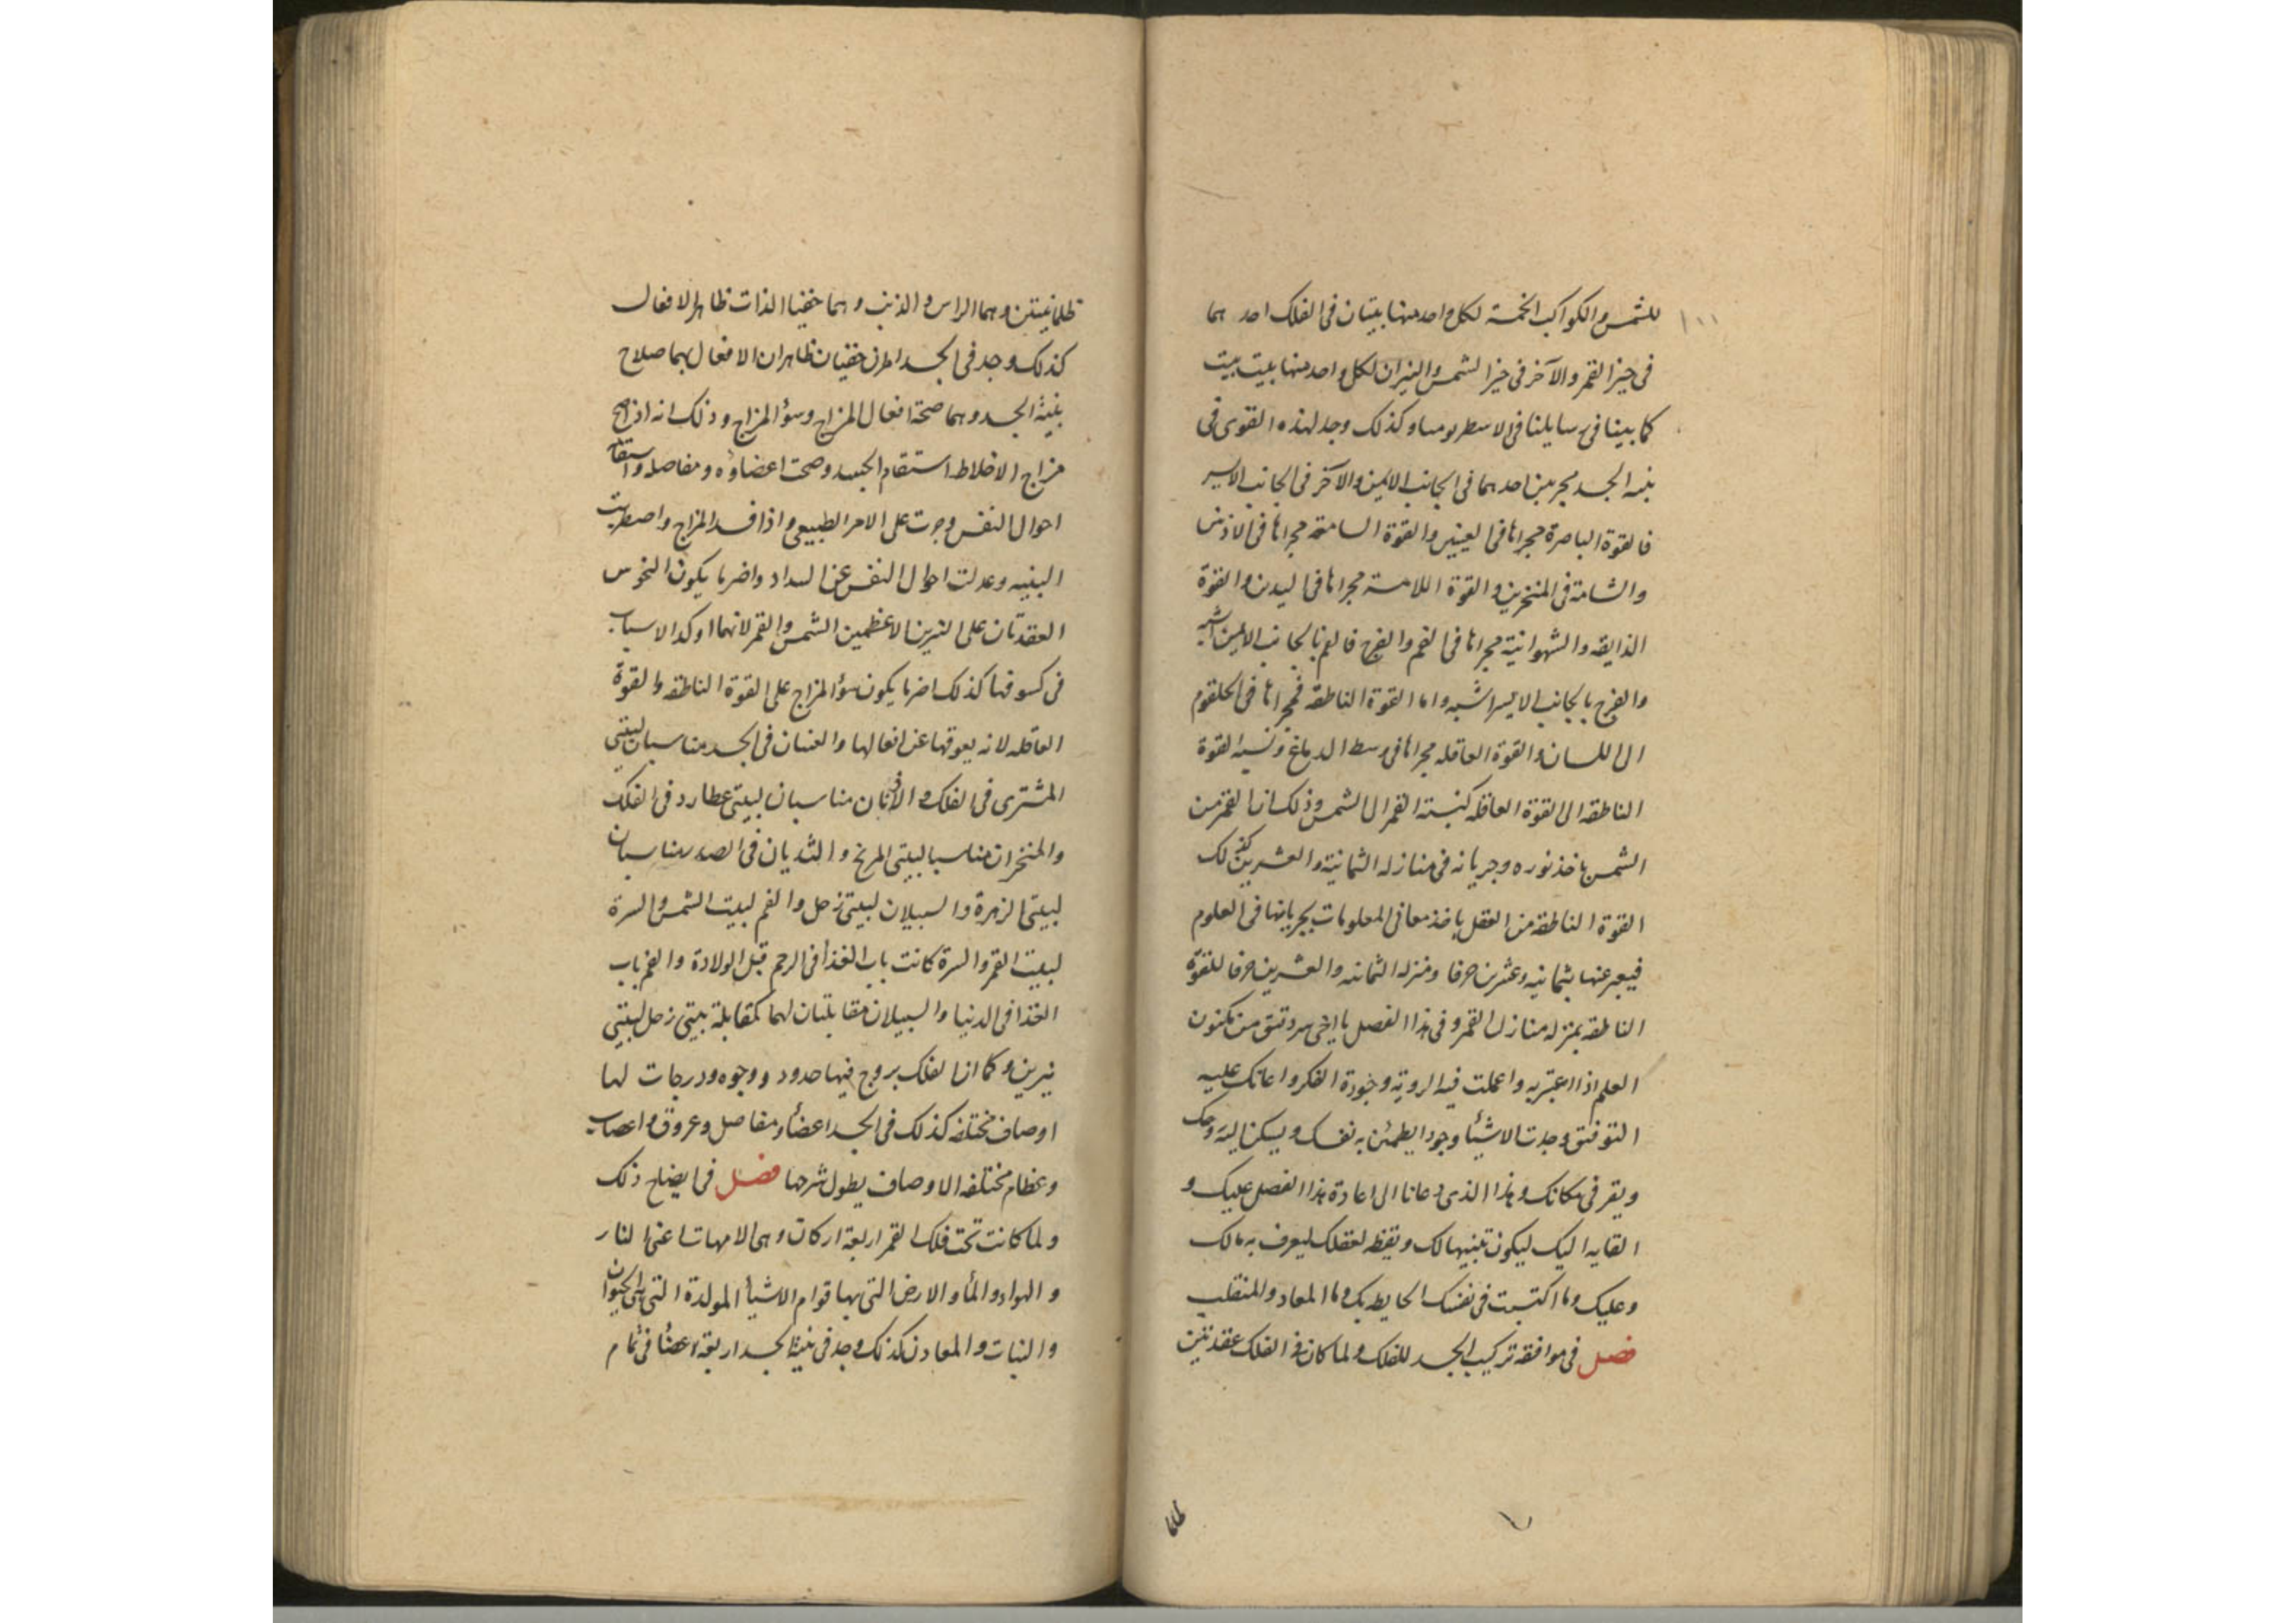 ١٠٠
للشمس والكواكب الخمسة لكل واحد منها بيتان فى الفلك احدهما
فى حيز القمر والآخر فى حيز الشمس والنيران لكل واحد منها بيت بيت
كما بينا فى رسايلنا فى الاسطرنوميا وكذلك وجد لهذه القوى فى
بنيه الجسد مجريين احدهما فى الجانب الايمن والآخر فى الجانب الايسر
فالقوة الباصرة مجراها فى العينين والقوة السامعة مجراها فى الاذنين
والشامة فى المنخرين والقوة اللامسة مجراها فى اليدين والقوة
الذايقه والشهوانية مجراها فى الفم والفرج فالفم بالجانب الايمن اشبه
والفرج بالجانب الايسر اشبه واما القوة الناطقه فمجراها فى الحلقوم
الى اللسان والقوة العاقله مجراها فى وسط الدماغ ونسبه القوة
الناطقه الى القوة العاقله كنسبة القمر الى الشمس وذلك ان القمر من
الشمس ياخذ نوره وجريانه فى منازله الثمانية والعشرين كذلك
القوة الناطقه من العقل ياخذ معانى المعلومات بجريانها فى العلوم
فيعبر عنها بثمانيه وعشرين حرفا ومنزله الثمانيه والعشرين حرفا للقوة
الناطقه بمنزله منازل القمر وفى هذا الفصل يا اخى سر دقيق من مكنون
العلم اذا اعتبر به واعملت فيه الروية وجودة الفكر واعانك عليه
التوفيق وجدت الاشيأ وجودا يطمئن به نفسك ويسكن اليه روحك
ويقر فى مكانك وهذا الذى دعانا الى اعادة هذا الفصل عليك و
القايه اليك ليكون تنبيها لك ويقظه لعقلك ليعرف به مالك
وعليك وما اكتسبت فى نفسك الحايط بك وما المعاد والمنقلب
فصل فى موافقه تركيب الجسد للفلك ولما كان فى الفلك عقدتين
ظلمانيتين وهما الراس والذنب وهما خفيا الذات ظاهرا لافعال
كذلك وجد فى الجسد امران خفيان ظاهران الافعال بهما صلاح
بنية الجسد وهما صحة افعال المزاج وسؤ المزاج وذلك انه اذا صح
مزاج الاخلاط استقام الجسد وصحت اعضاؤه ومفاصله واستقامت
احوال النفس وجرت على الامر الطبيعى واذا فسد المزاج واضطربت
البنيه وعدلت احوال النفس عن السداد واضر ما يكون النحوس
العقدتان على النيرين الاعظمين الشمس والقمر لانهما اوكد الاسباب
فى كسوفها كذلك اضر ما يكون سؤ المزاج على القوة الناطقه والقوة
العاقله لانه يعوقها عن افعالها والعينان فى الجسد مناسبان لبيتى
المشترى فى الفلك والاذنان مناسبان لبيتى عطارد فى الفلك
والمنخران مناسبا لبيتى المريخ والثديان فى الصدر مناسبان
لبيتى الزهرة والسبيلان لبيتى زحل والفم لبيت الشمس والسرة
لبيت القمر والسرة كانت باب الغذأ فى الرحم قبل الولادة والفم باب
الغذا فى الدنيا والسبيلان مقابلتان لهما كمقابلة بيتى زحل لبيتى
نيرين وكما ان الفلك بروج فيها حدود ووجوه ودرجات لها
اوصاف مختلفه كذلك فى الجسد اعضأ ومفاصل وعروق واعصاب
وعظام مختلفه الاوصاف يطول شرحها فصل فى ايضاح ذلك
ولما كانت تحت فلك القمر اربعة اركان وهى الامهات اعنى النار
والهواء والمأ والارض التى بها قوام الاشيأ المولدة التى هى الحيوان
والنبات والمعادن كذلك وجد فى بنية الجسد اربعة اعضأ فى تمام